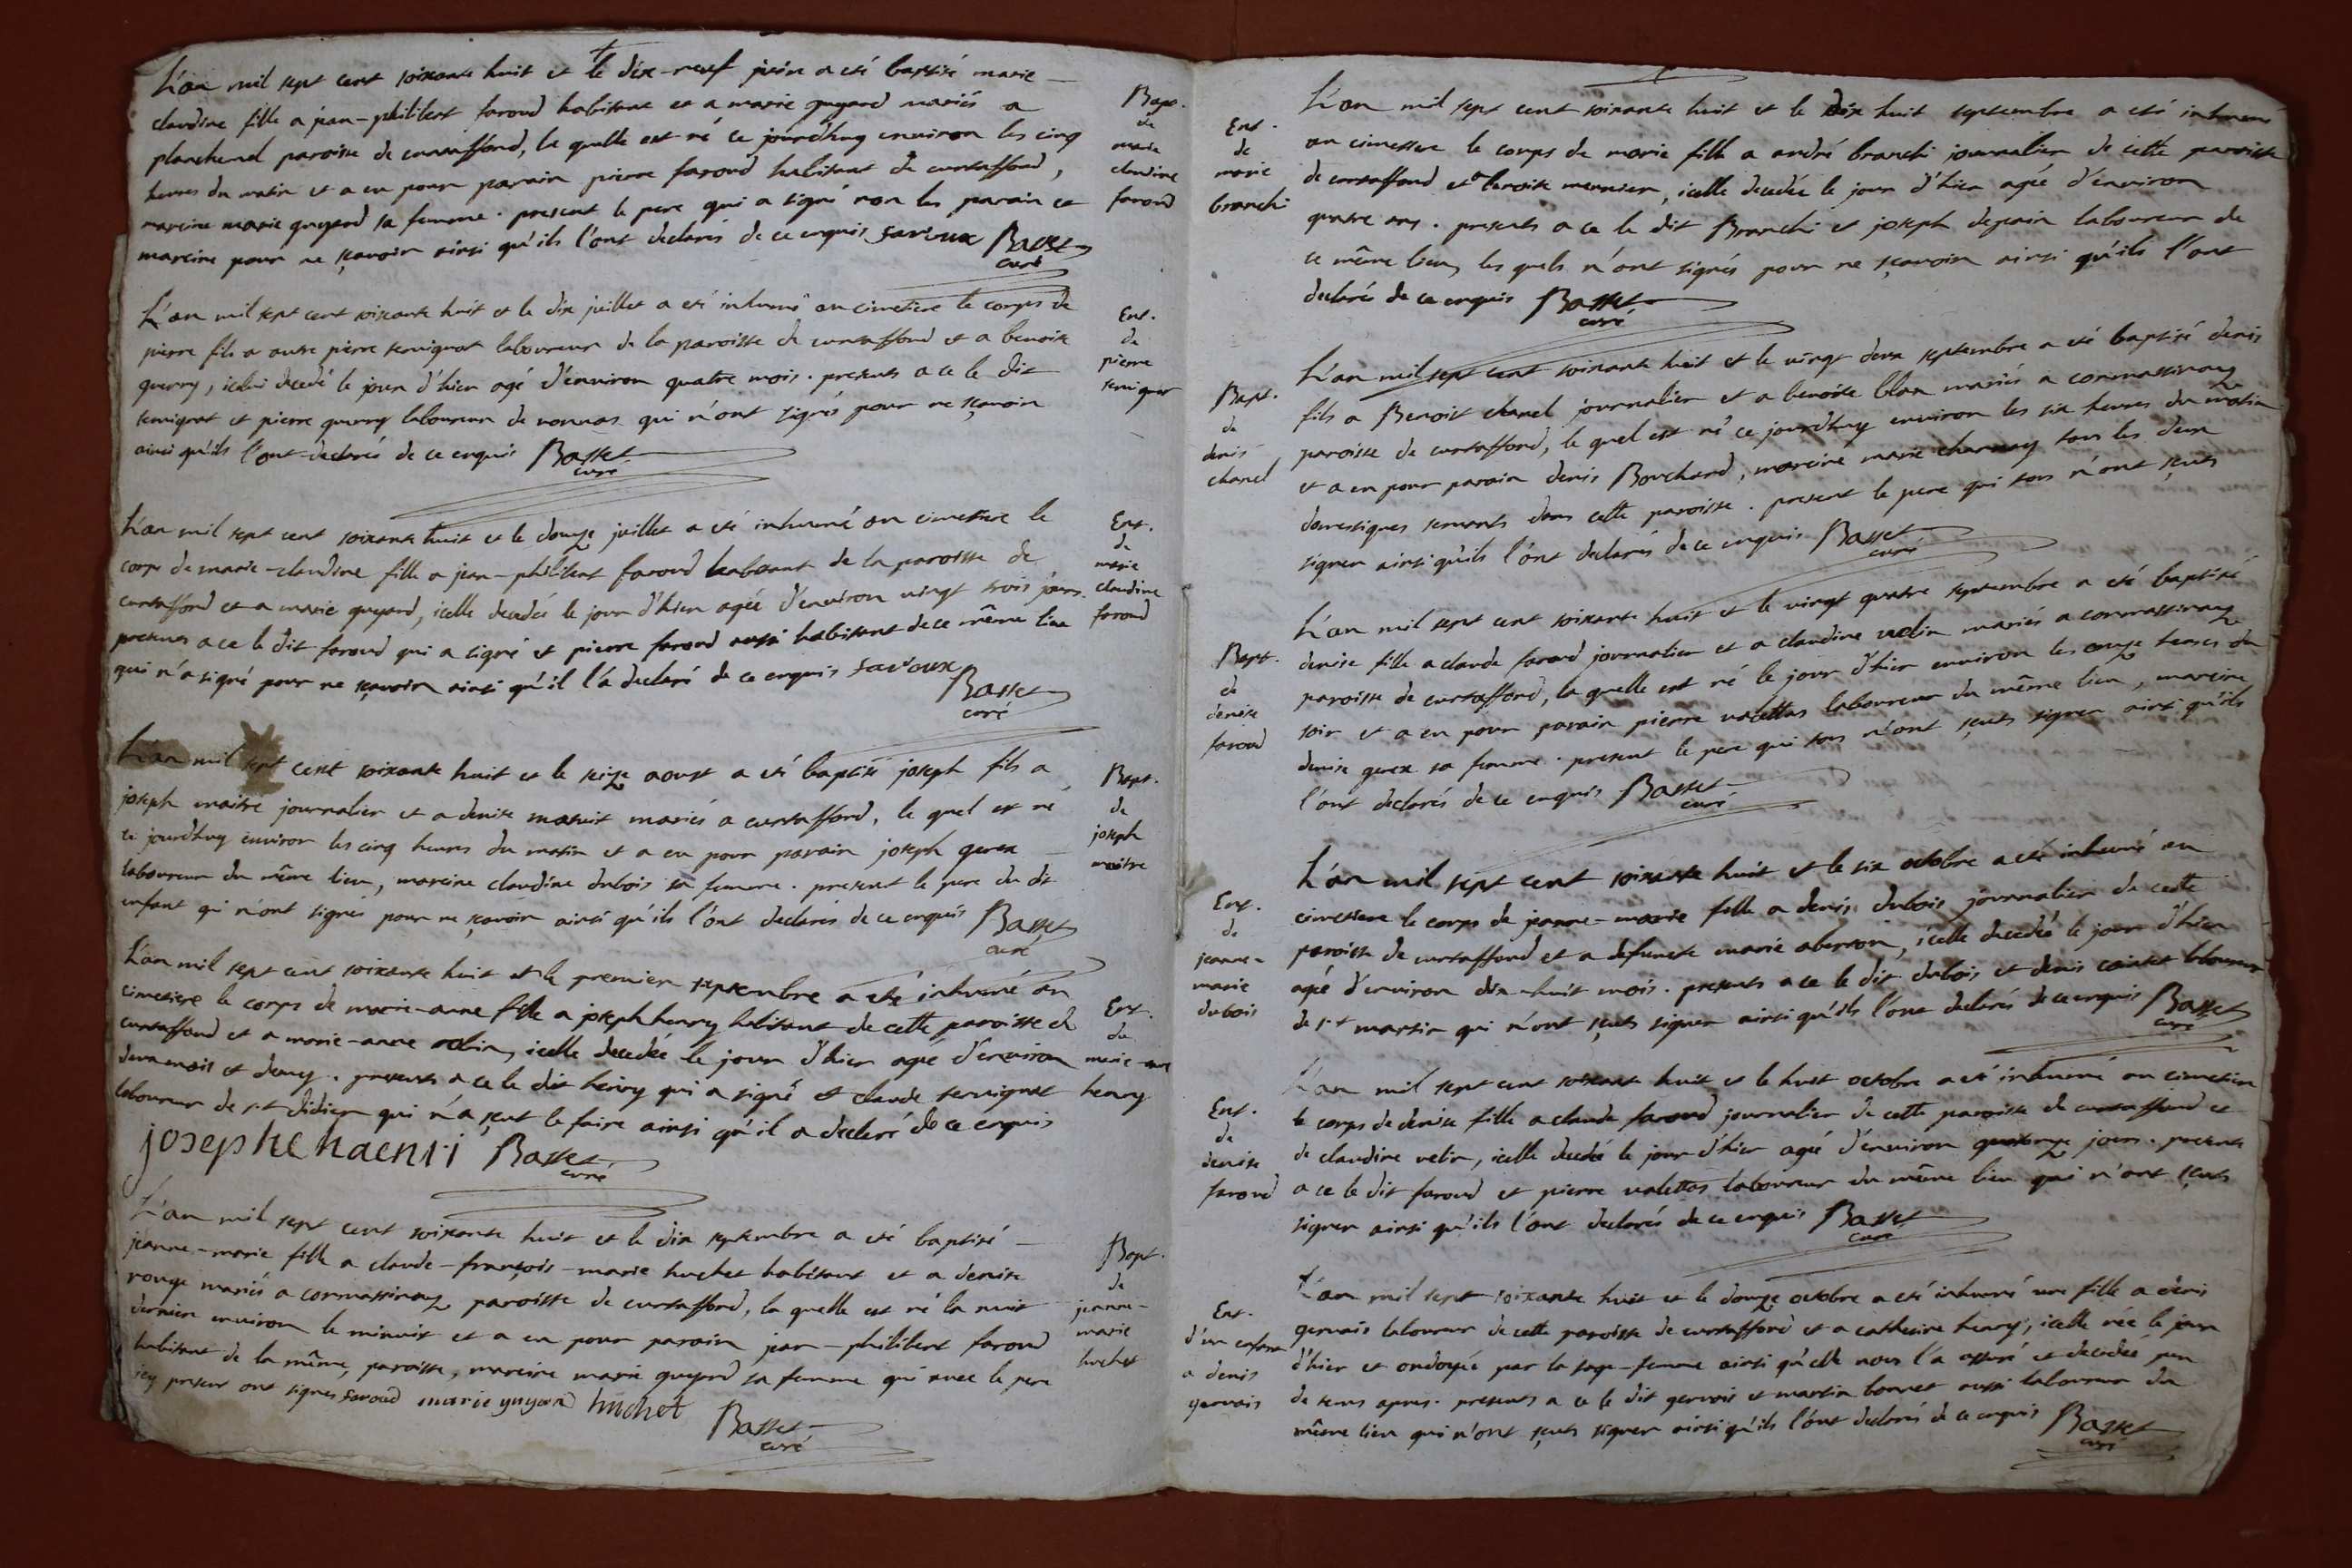 L'an mil sept cent soixante huit et le dix-neuf juin a eté baptisé marie-
claudine fille a jean-philibert faroud habitant et a marie guyard mariés a
planchenel paroisse de curtaffond, la quelle est né ce jourdhuy environ les cinq
heures du matin et a eu pour parain pierre faroud habitant de curtaffond,
mareine marie guyard sa femme. present le pere qui a signé non les parain et
mareine pour ne sçavoir ainsi qu'ils l'ont declarés de ce enquis Basset
curé
Bapt.
de
marie
claudine
faroud
L'an mil sept cent soixante huit et le dix juillet a eté inhumé au cimetiere le corps de
pierre fils a autre pierre servignat laboureur de la paroisse de curtaffond et a benoite
guerry, icelui decedé le jour d'hier agé d'environ quatre mois. presents a ce le dit
servignat et pierre guerry laboureur de vonnas qui n'ont signés pour ne sçavoir
ainsi qu'ils l'ont declarés de ce enquis Basset
curé
Ent.
de
pierre
servignat
L'an mil sept cent soixante huit et le douze juillet a eté inhumé au cimetiere le
corps de marie-claudine fille a jean-philibert faroud habitant de la paroisse de
curtaffond et a marie guyard, icelle decedée le jour d'hier agée d'environ vingt trois jours.
presents a ce le dit faroud qui a signé et pierre faroud aussi habitant de ce même lieu
qui n'a signé pour ne sçavoir ainsi qu'il l'a declaré de ce enquis Basset
curé
Ent.
de
marie
claudine
faroud
L'an mil sept cent soixante huit et le seize aoust a eté baptisé joseph fils a
joseph maitre journalier et a denise mariés a curtaffond, le quel est né
ce jourdhuy environ les cinq heures du matin et a eu pour parain joseph gerex
laboureur du même lieu, mareine claudine dubois sa femme. present le pere du dit
enfant qui n'ont signés pour ne sçavoir ainsi qu'ils l'ont declarés de ce enquis Basset
curé
Bapt.
de
joseph
maitre
L'an mil sept cent soixante huit et le premier septembre a eté inhumé au
cimetiere le corps de marie-anne fille a joseph henry habitant de cette paroisse de
curtaffond et a marie-anne robin, icelle decedée le jour d'hier agée d'environ
deux mois et demy. presents a ce le dit henry qui a signé et claude servignat
laboureur de st didier qui n'a sçut le faire ainsi qu'il a declaré de ce enquis
josephe haenri Basset
curé
Ent.
de
marie-anne
henry
L'an mil sept cent soixante huit et le dix septembre a eté baptisé
jeanne-marie fille a claude-françois-marie huchet habitant et a denise
rouge mariés a cormassinoux paroisse de curtaffond, la quelle est né la nuit
derniere environ le minuit et a eu pour parain jean-philibert faroud
habitant de la même paroisse, mareine marie guyard sa femme qui avec le pere
icy present ont signés faroud marie guyard huchet Basset
curé
Bapt.
de
jeanne-
marie
huchet
Ent.
de
marie
branchi
L'an mil sept cent soixante huit et le dix huit septembre a eté inhumé
au cimetiere le corps de marie fille a andré branchi journalier de cette paroisse
de curtaffond et a benoite meunier, icelle decedée le jour d'hier agée d'environ
quatre ans. presents a ce le dit Branchi et joseph dejoin laboureur de
ce même lieu, les quels n'ont signés pour ne sçavoir ainsi qu'ils l'ont
declarés de ce enquis Basset
curé
Bapt.
de
denis
chanel
L'an mil sept cent soixante huit et le vingt deux septembre a eté baptisé denis
fils a Benoit chanel journalier et a benoite blan mariés a cormassinoux
paroisse de curtaffond, le quel est né ce jourdhuy environ les six heures du matin
et a eu pour parain denis Bouchard, mareine marie charnay tous les deux
domestiques servants dans cette paroisse. present le pere qui tous n'ont sçuts
signer ainsi qu'ils l'ont declarés de ce enquis Basset
curé
Bapt.
de
denise
faroud
L'an mil sept cent soixante huit et le vingt quatre septembre a eté baptisé
denise fille a claude faroud journalier et a claudine velin mariés a cormassinoux
paroisse de curtaffond, la quelle est né le jour d'hier environ les onze heures du
soir et a eu pour parain pierre valettas laboureur du même lieu, mareine
denise gerex sa femme. present le pere qui tous n'ont sçuts signer ainsi qu'ils
l'ont declarés de ce enquis Basset
curé
Ent.
de
jeanne-
marie
dubois
L'an mil sept cent soixante huit et le six octobre a eté inhumé au
cimetiere le corps de jeanne-marie fille a denis dubois journalier de cette
paroisse de curtaffond et a defuncte marie aberron, icelle decedée le jour d'hier
agé d'environ dix-huit mois. presents a ce le dit dubois et denis cointet laboureur
de st martin qui n'ont sçuts signer ainsi qu'ils l'ont declarés de ce enquis Basset
curé
Ent.
de
denise
faroud
L'an mil sept cent soixante huit et le huit octobre a eté inhumé au cimetiere
le corps de denise fille a claude faroud journalier de cette paroisse de curtaffond et
de claudine velin, icelle decedé le jour d'hier agé d'environ quatorze jours. presents
a ce le dit faroud et pierre valettas laboureur du même lieu qui n'ont sçuts
signer ainsi qu'ils l'ont declarés de ce enquis Basset
curé
Ent.
d'un enfant
a denis
gervais
L'an mil sept soixante huit et le douze octobre a eté inhumé une fille a denis
gervais laboureur de cette paroisse de curtaffond et a catherine henry, icelle née le jour
d'hier et ondoyée par la sage-femme ainsi qu'elle nous l'a assuré et decedée peu
de tems apres. presents a ce le dit gervais et martin bonnet aussi laboureur du
même lieu qui n'ont sçuts signer ainsi qu'ils l'ont declarés de ce enquis Basset
curé